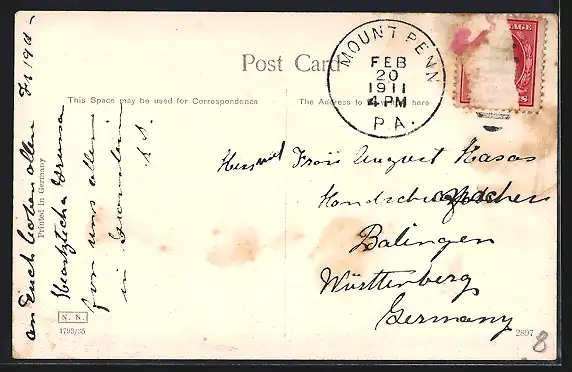 Post Card
This Space may be used for Correspondence
The Address to be written here
MOUNT PENN
FEB
20
1911
4 PM
PA.
Herrn und Frau August Kasas
Handschuhmacher
Balingen
Württenberg
Germany
an Euch Lieben allen
Herzliche Grüsse
from uns allen
in
S.S.
Printed in Germany
N. N.
1793/35
2897
8